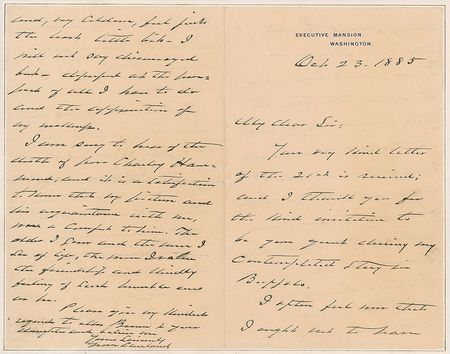 EXECUTIVE MANSION.
WASHINGTON.
Oct 23. 1885
My dear Sir:
Your very kind letter
of the 20th is received;
and I thank you for
the kind invitation to
be your guest during my
contemplated stay in
Buffalo.
I often feel now that
I ought not to have
and, very seldom, feel just
the least little bit. I
will not say discouraged
but
of all I have to do
and the opposition of
my
I am sorry to hear of the
death of poor Charley
and it is a satisfaction
to know that my picture and
his acquaintance with me,
was a comfort to him. The
older I grow and the more I
see of life, the more I value
the friendship and kindly
feeling of such humble ones
as he.
Please give my kindest
regards to Mrs & your
daughter and believe me
Yours Sincerely
Grover Cleveland